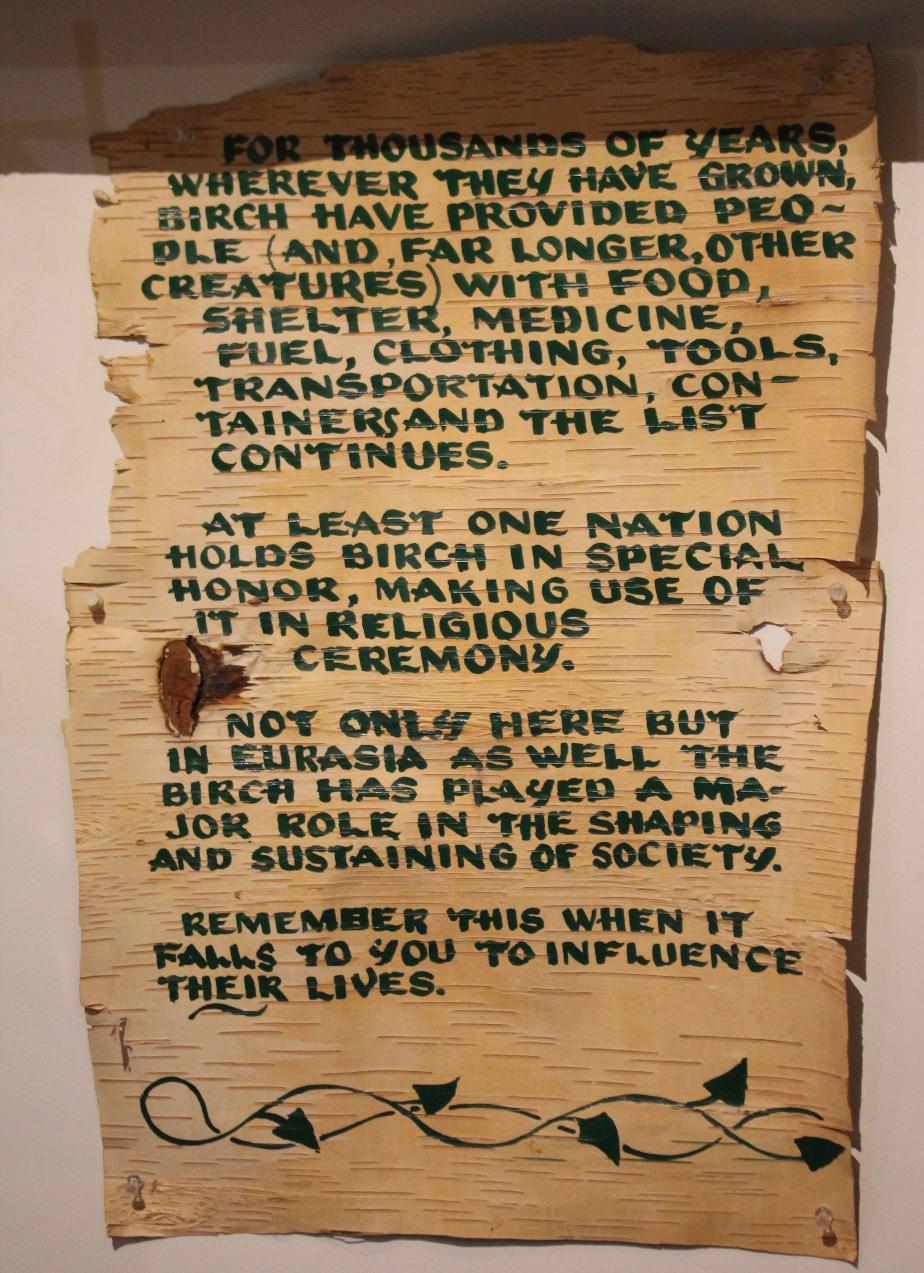 FOR THOUSANDS OF YEARS,
WHEREVER THEY HAVE GROWN,
BIRCH HAVE PROVIDED PEO~
PLE (AND, FAR LONGER, OTHER
CREATURES) WITH FOOD,
SHELTER, MEDICINE,
FUEL, CLOTHING, TOOLS,
TRANSPORTATION, CON-
TAINERS AND THE LIST
CONTINUES.
AT LEAST ONE NATION
HOLDS BIRCH IN SPECIAL
HONOR, MAKING USE OF
IT IN RELIGIOUS
CEREMONY.
NOT ONLY HERE BUT
IN EURASIA AS WELL THE
BIRCH HAS PLAYED A MA-
JOR ROLE IN THE SHAPING
AND SUSTAINING OF SOCIETY.
REMEMBER THIS WHEN IT
FALLS TO YOU TO INFLUENCE
THEIR LIVES.